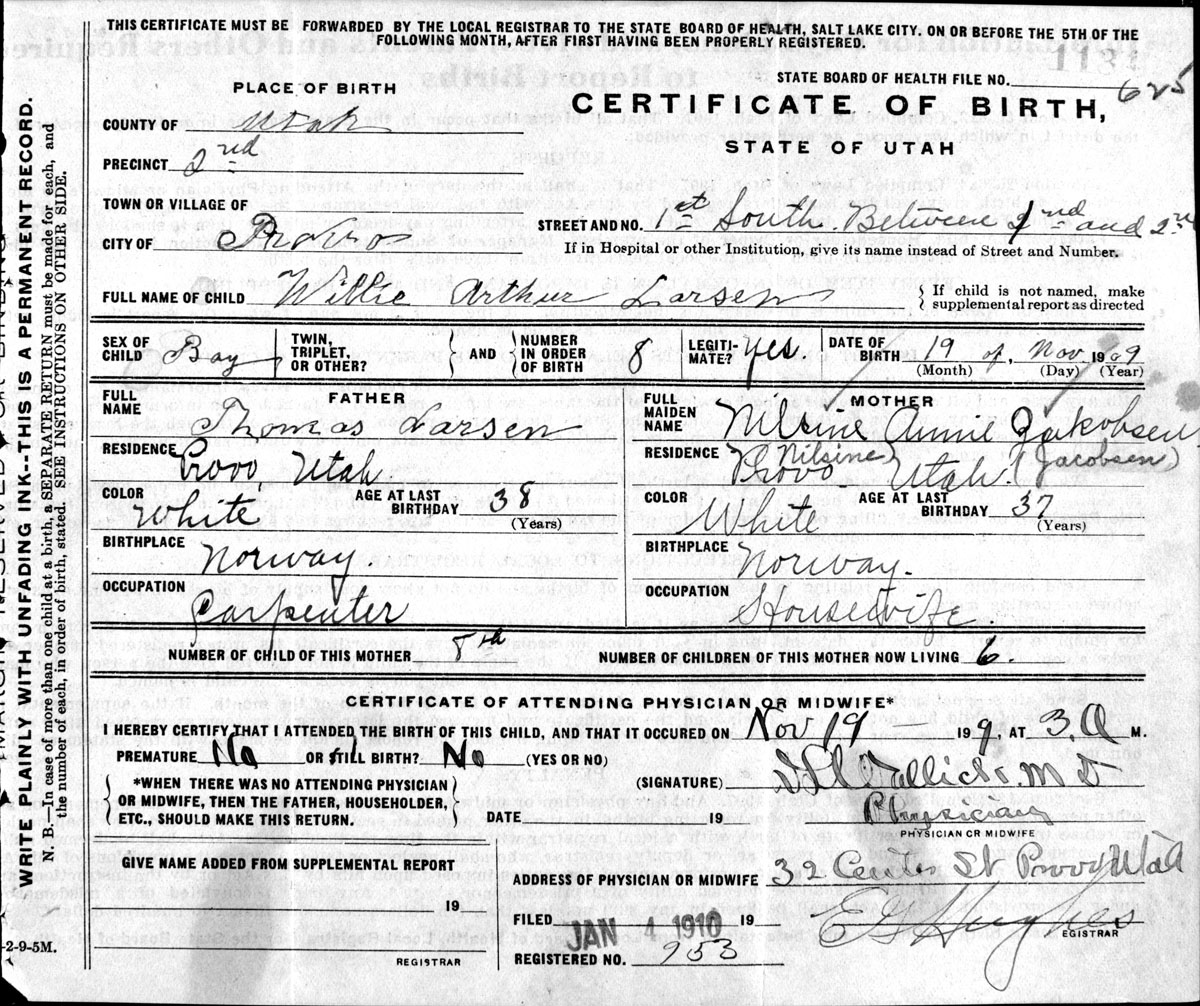 THIS CERTIFICATE MUST BE FORWARDED BY THE LOCAL REGISTRAR TO THE STATE BOARD OF HEALTH, SALT LAKE CITY. ON OR BEFORE THE 5TH OF THE
FOLLOWING MONTH, AFTER FIRST HAVING BEEN PROPERLY REGISTERED.
STATE BOARD OF HEALTH FILE NO. 625
PLACE OF BIRTH
CERTIFICATE OF BIRTH,
STATE OF UTAH
COUNTY OF Utah
PRECINCT 2nd
TOWN OR VILLAGE OF
CITY OF Provo
STREET AND NO. 1st South. Between and 2nd
If in Hospital or other institution, give its name instead of Street and Number.
FULL NAME OF CHILD Willie Arthur Larsen
{ If child is not named, make
supplemental report as directed
SEX OF CHILD Boy
TWIN, TRIPLET, OR OTHER?
} AND {
NUMBER IN ORDER OF BIRTH 8
LEGITI-MATE? Yes.
DATE OF BIRTH 19 of, Nov 1909
(Month) (Day) (Year)
FATHER
FULL NAME Thomas Larsen
RESIDENCE Provo, Utah
COLOR White
AGE AT LAST BIRTHDAY 38
(Years)
BIRTHPLACE Norway
OCCUPATION Carpenter
MOTHER
FULL MAIDEN NAME Nilsine Annie Jakobsen
(Nilsine) (Jacobsen)
RESIDENCE Provo Utah.
COLOR White
AGE AT LAST BIRTHDAY 37
(Years)
BIRTHPLACE Norway.
OCCUPATION Housewife.
NUMBER OF CHILD OF THIS MOTHER 8th
NUMBER OF CHILDREN OF THIS MOTHER NOW LIVING 6.
CERTIFICATE OF ATTENDING PHYSICIAN OR MIDWIFE*
I HEREBY CERTIFY THAT I ATTENDED THE BIRTH OF THIS CHILD, AND THAT IT OCCURED ON Nov 19 199, AT 3. A M.
PREMATURE No OR STILL BIRTH? No (YES OR NO)
*WHEN THERE WAS NO ATTENDING PHYSICIAN
OR MIDWIFE, THEN THE FATHER, HOUSEHOLDER,
ETC., SHOULD MAKE THIS RETURN.
(SIGNATURE) M D
Physician
PHYSICIAN OR MIDWIFE
DATE 19
GIVE NAME ADDED FROM SUPPLEMENTAL REPORT
19
REGISTRAR
ADDRESS OF PHYSICIAN OR MIDWIFE 32 Center St Provo, Utah
FILED JAN 4 1910 19
E G Hughes
REGISTRAR
REGISTERED NO. 953
2-9-5M.
WRITE PLAINLY WITH UNFADING INK--THIS IS A PERMANENT RECORD.
N. B.—In case of more than one child at a birth, a SEPARATE RETURN must be made for each, and
the number of each, in order of birth, stated. SEE INSTRUCTIONS ON OTHER SIDE.